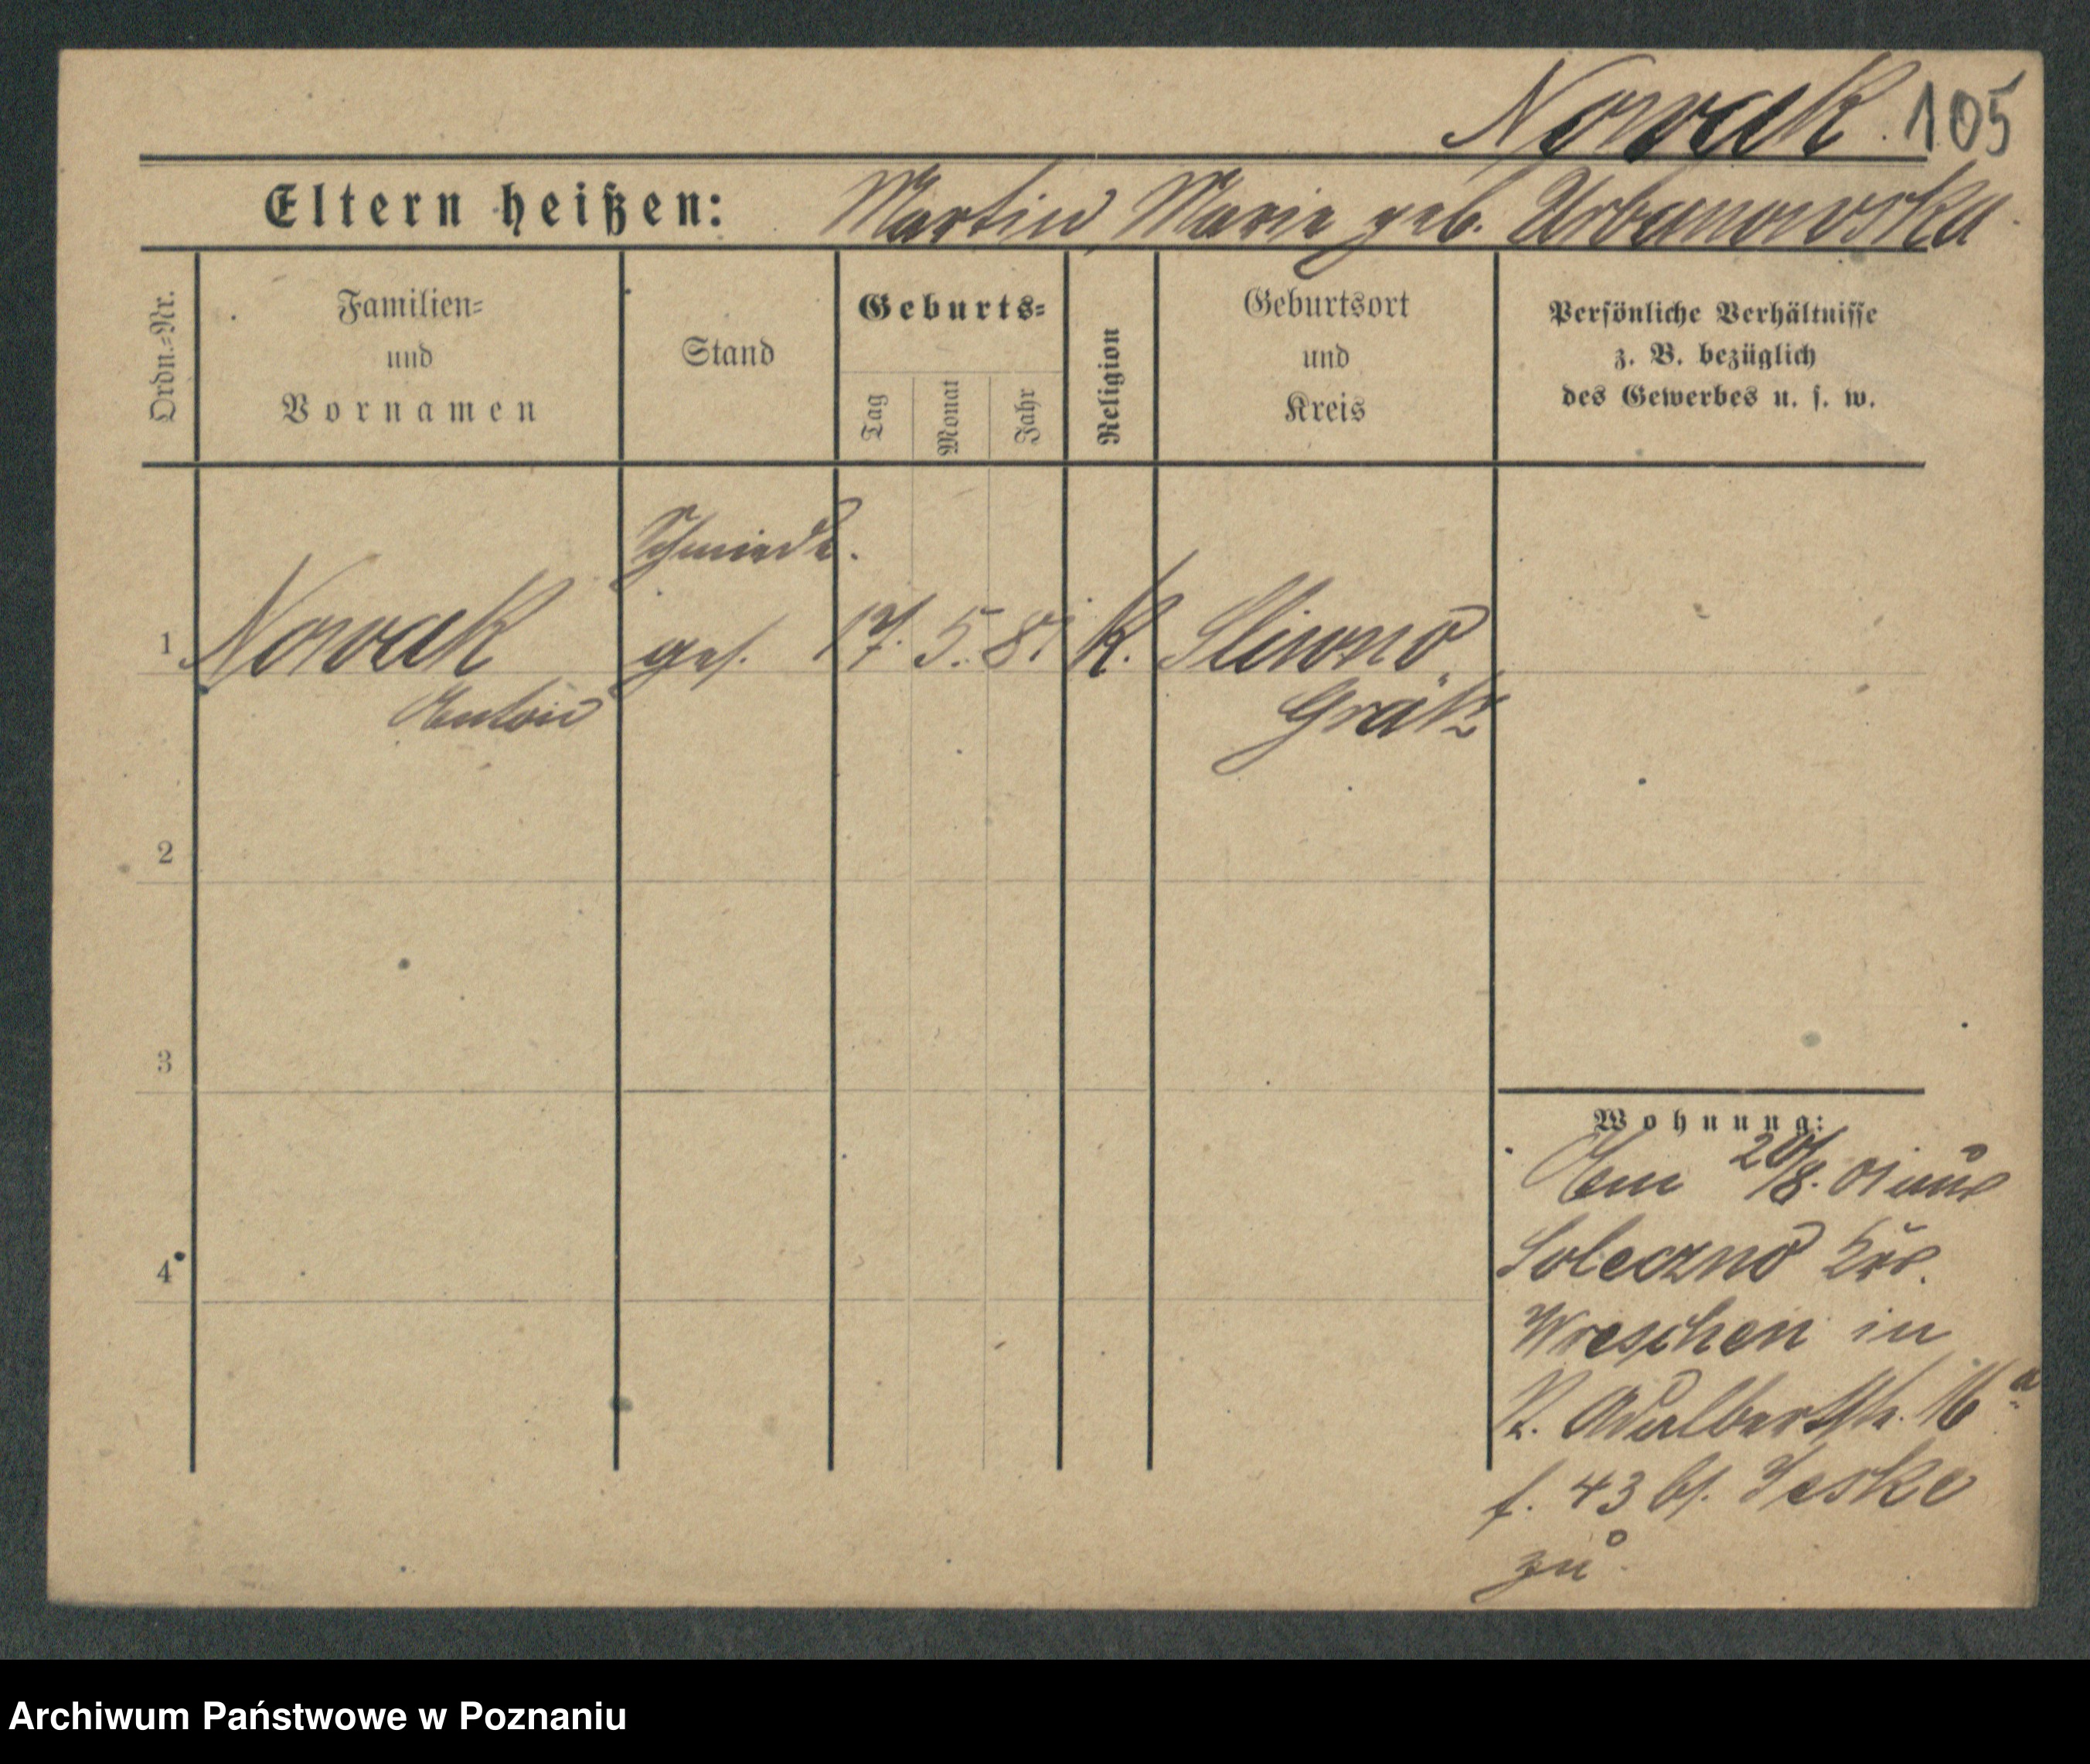 Nowak. 105
Eltern heißen: Martin, Marie geb. Urbanowska
Ordn.-Nr.
Familien=
und
Vornamen
Stand
Geburts=
Tag
Monat
Jahr
Religion
Geburtsort
und
Kreis
Persönliche Verhältnisse
z. B. bezüglich
des Gewerbes u. s. w.
Schmiede.
1 Nowak ges. 17. 5. 81 K. Sliwno
Anton Grätz
2
3
4
Wohnung:
Am 20/8. 01 aus
Soleczno Krs.
Wreschen in
Adalbertstr. 16a
f. 43 bs. Jeske
zu
Archiwum Państwowe w Poznaniu